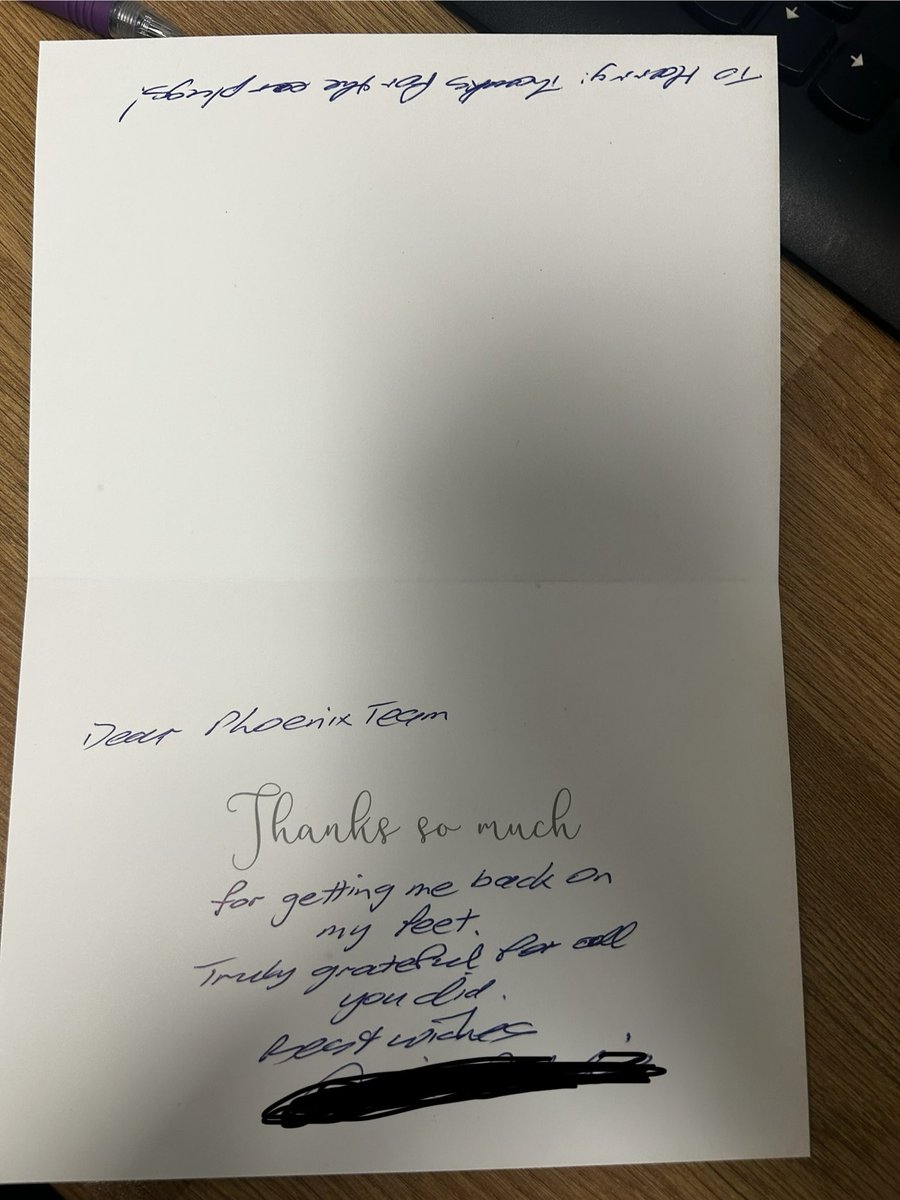 To Harry: Thanks for the ear plugs!
Dear Phoenix Team
Thanks so much
for getting me back on
my feet.
Truly grateful for all
you did.
Best wishes